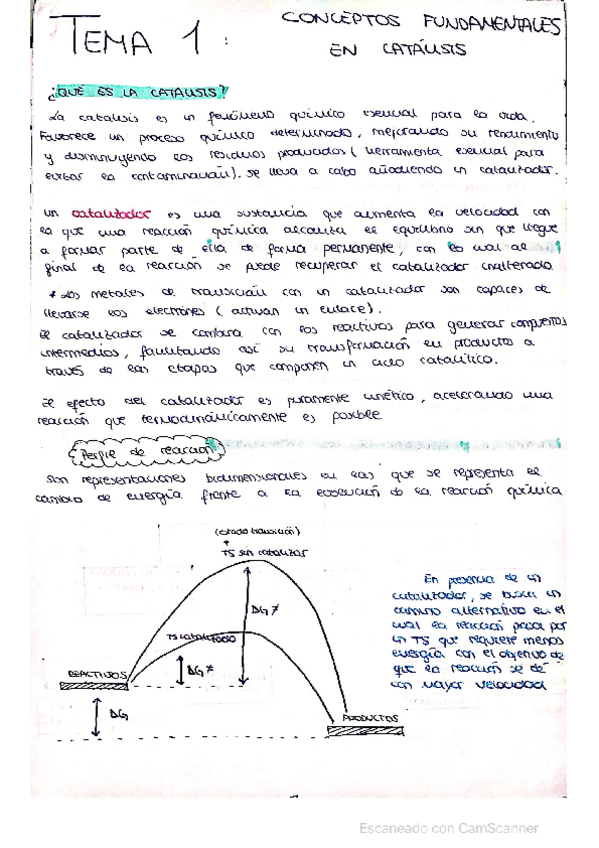 TEMA 1: CONCEPTOS FUNDAMENTALES
EN CATÁLISIS
¿QUÉ ES LA CATÁLISIS?
La catálisis es un fenómeno químico esencial para la vida.
Favorece un proceso químico determinado, mejorando su rendimiento
y disminuyendo los residuos producidos (herramienta esencial para
evitar la contaminación). Se lleva a cabo añadiendo un catalizador.
Un catalizador es una sustancia que aumenta la velocidad con
la que una reacción química alcanza el equilibrio sin que llegue
a formar parte de ella de forma permanente, con lo cual al
final de la reacción se puede recuperar el catalizador inalterado
* Los metales de transición con un catalizador son capaces de
llevarse los electrones (activan un enlace).
El catalizador se combina con los reactivos para generar compuestos
intermedios, facilitando así su transformación en productos a
través de las etapas que componen un ciclo catalítico.
El efecto del catalizador es puramente cinético, acelerando una
reacción que termodinámicamente es posible
Perfil de reacción
Son representaciones bidimensionales en las que se representa el
cambio de energía frente a la evolución de la reacción química
(estado transición)
TS sin catalizar
ΔG≠
TS catalizado
ΔG≠
REACTIVOS
ΔG
PRODUCTOS
En presencia de un
catalizador, se busca un
camino alternativo en el
cual la reacción pasa por
un TS que requiere menos
energía con el objetivo de
que la reacción se dé
con mayor velocidad
Escaneado con CamScanner